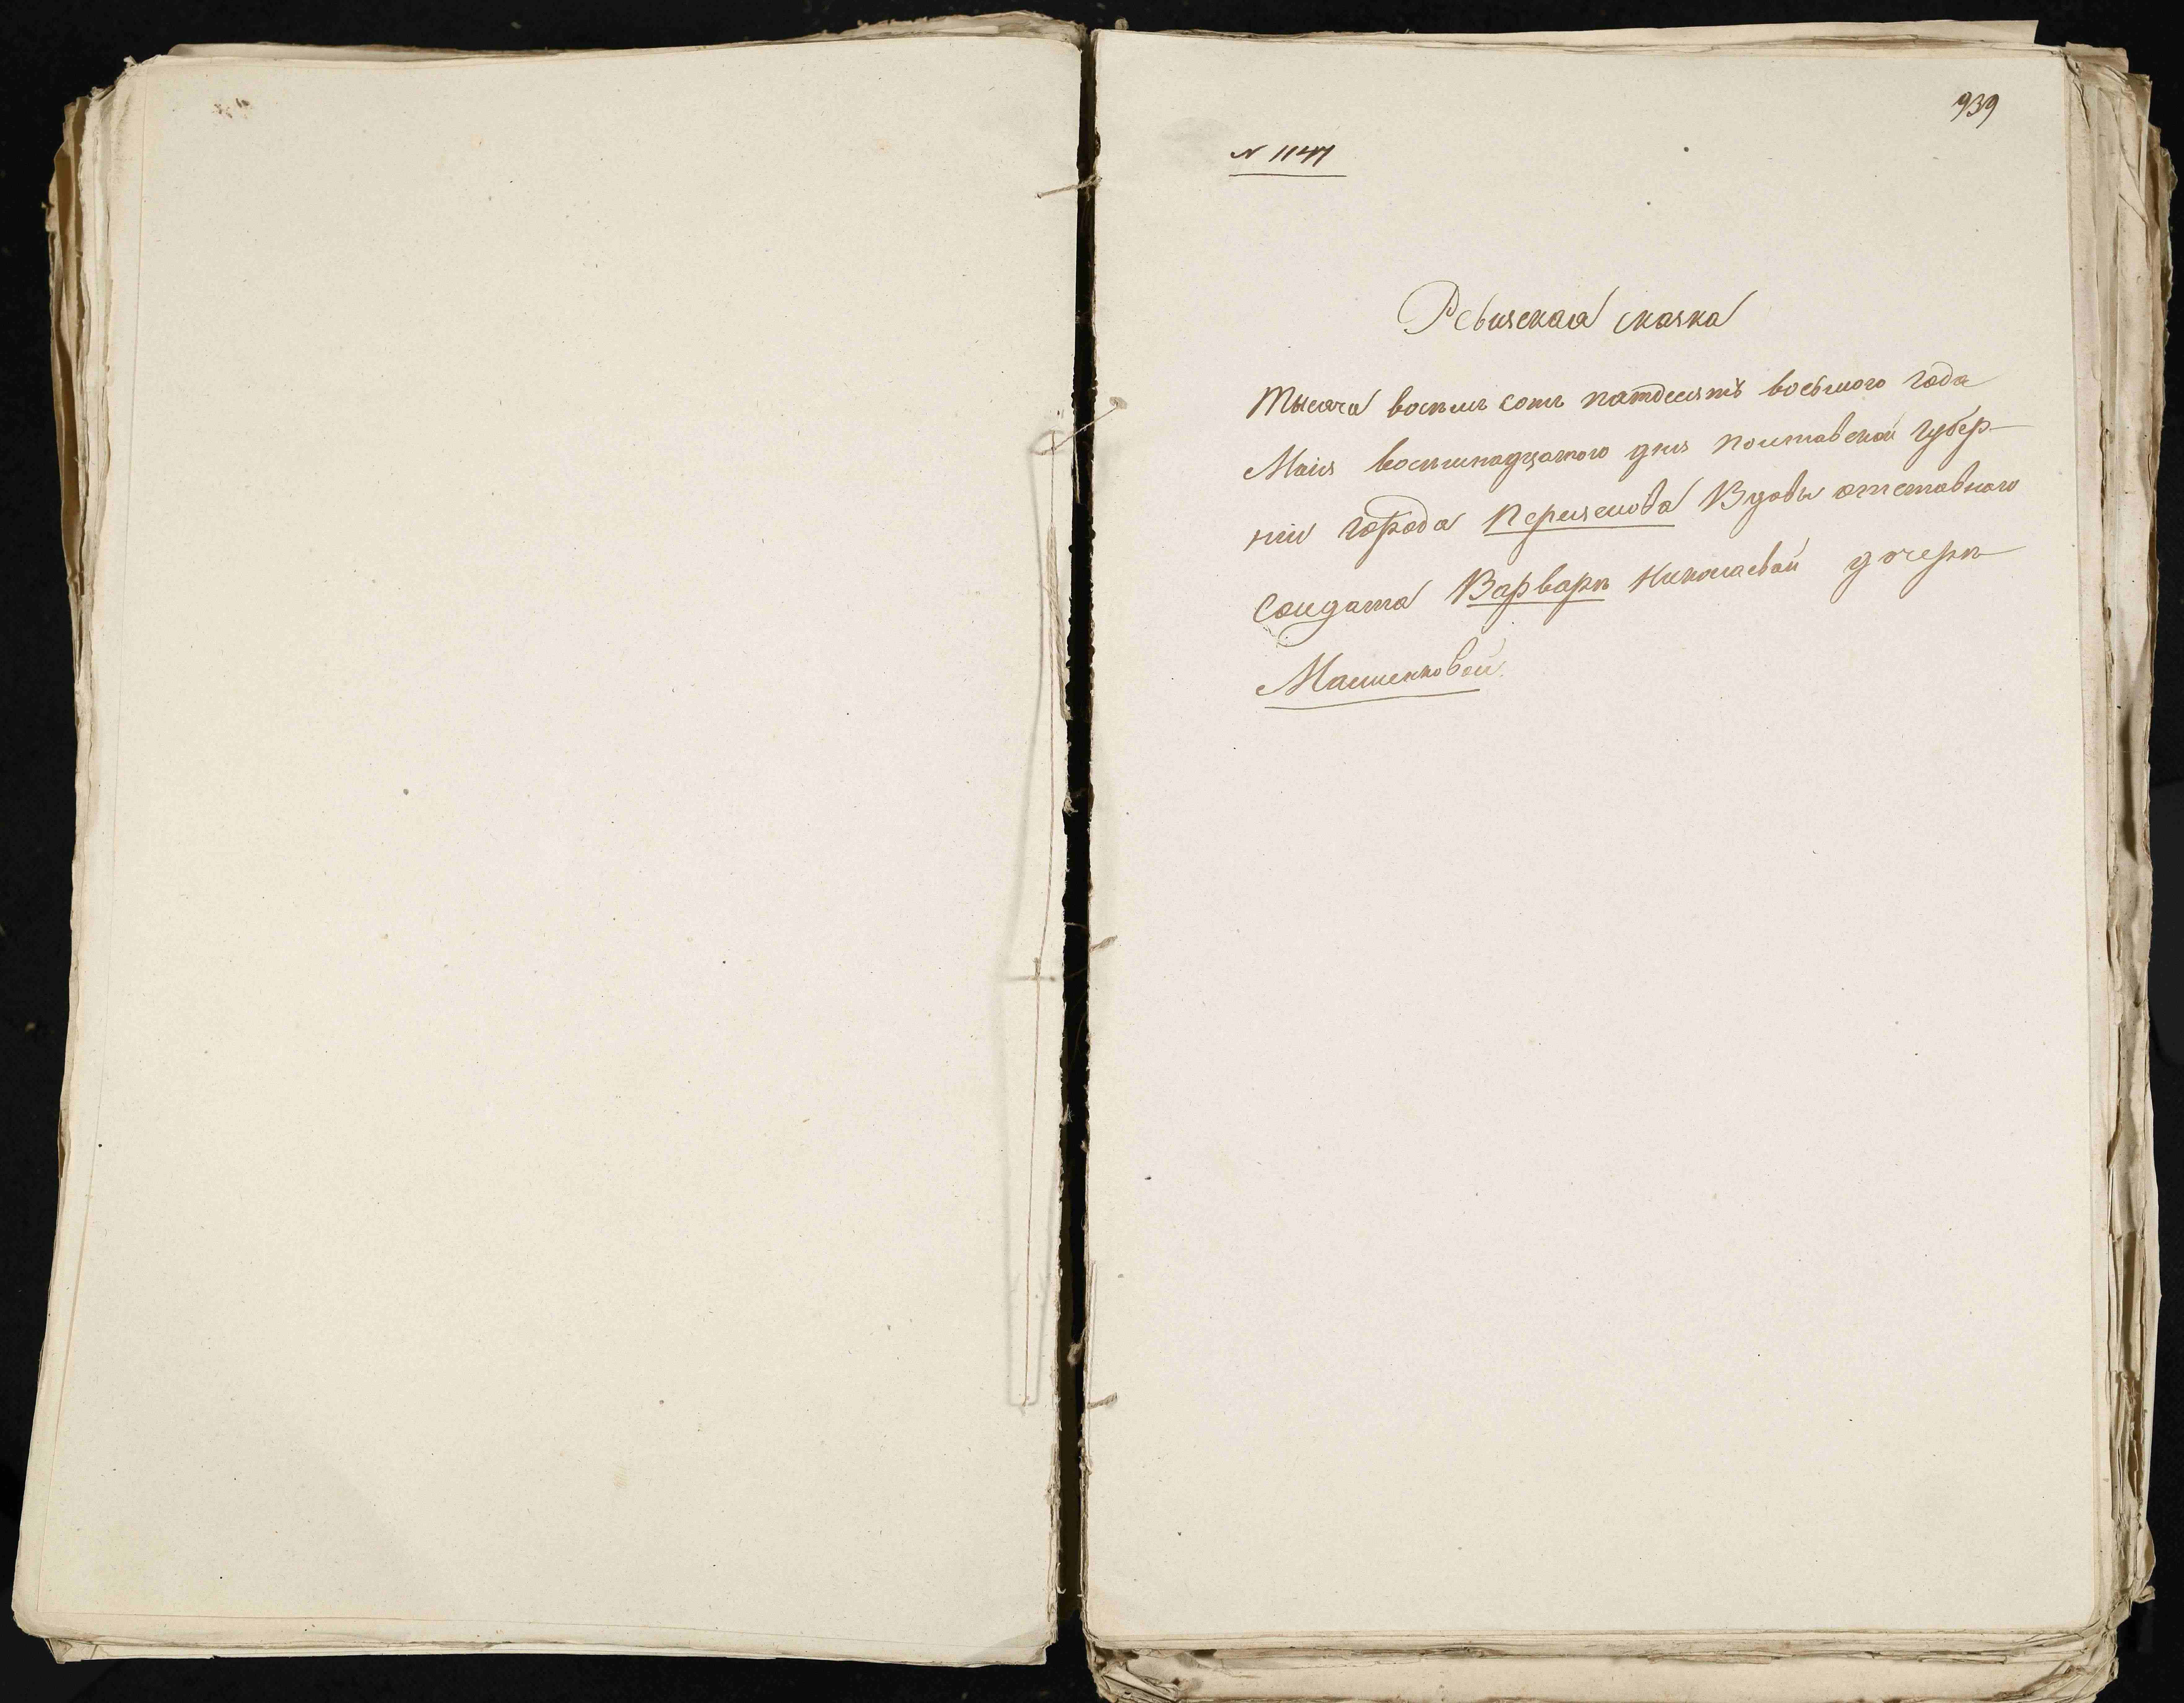 939
N 1147
Ревизская сказка
Тысяча восемь сотъ пятдесятъ восьмого года
Маія восемнадцатого дня Полтавской губер-
ніи города Переяслова Вдовы отставного
Солдата Варвары Николаевой дочери
Машенковой.